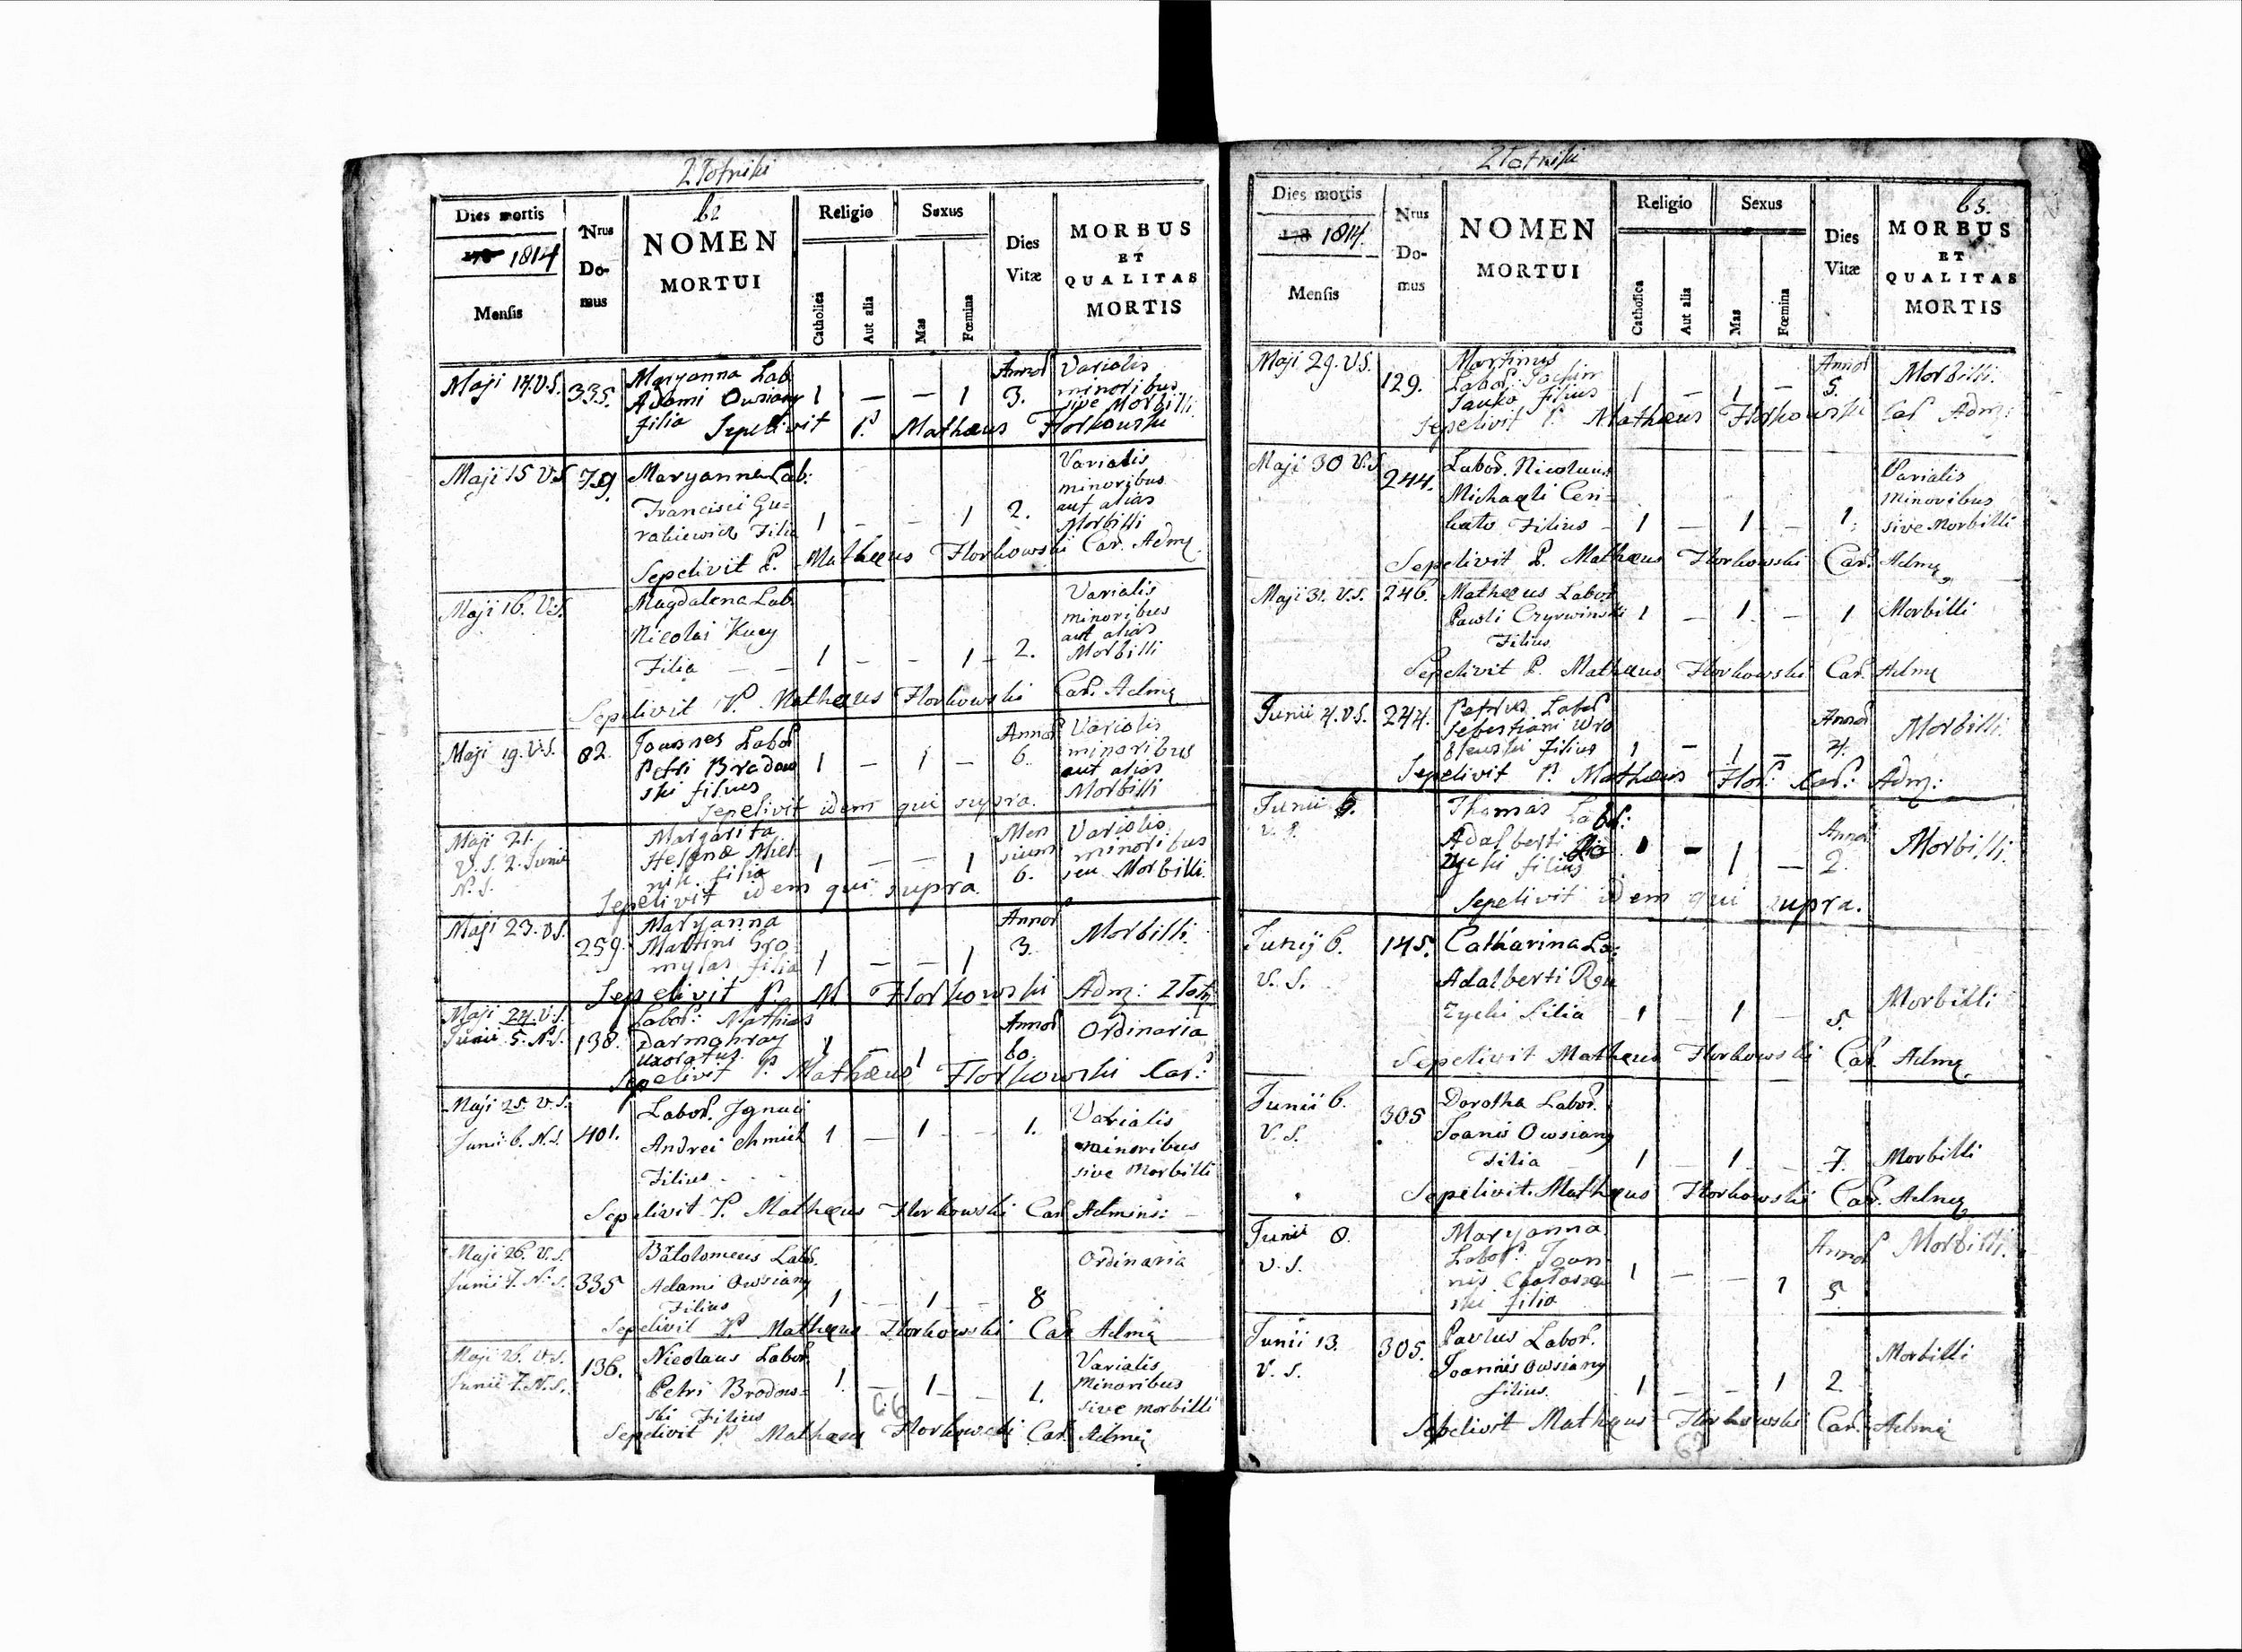 Złotniki
Dies mortis
1814
Mensis
Nrus
Do-
mus
62
NOMEN
MORTUI
Religio
Catholica
Aut alia
Sexus
Mas
Fœmina
Dies
Vitæ
MORBUS
ET
QUALITAS
MORTIS
Maji 14. V.S. 335. Maryanna Lab. 1 — — 1 Annor Variolis
Adami Owsiany 3. minoribus
filia sive Morbilli
Sepelivit P. Mathæus Florkowski
Maji 15 V.S. 79 Maryanna Lab: Variolis
minoribus
Francisci Gu- aut alias
rakiewicz Filia 1 - - 1 2. Morbilli
Sepelivit P. Mathæus Florkowski Car. Admr
Maji 16. V.S. Magdalena Lab. Variolis
minoribus
Nicolai Kucy aut alias
Filia — — 1 - - 1 - 2. Morbilli
Sepelivit P. Mathæus Florkowski Car. Admr
Maji 19. V.S. 82. Joannes Labor Annor Variolis
Petri Brodow 1 — 1 — 6. minoribus
ski filius aut alias
Morbilli
Sepelivit idem qui supra.
Maji 21. Margarita Men Variolis
V.S. 2. Junii Helenæ Miel- 1 — — 1 sium minoribus
N.S. nik filia 6. seu Morbilli.
Sepelivit idem qui supra
Maji 23. V.S. Maryanna Annor Morbilli
259 Martini Gro 3.
mylas filia 1 — — 1
Sepelivit P. M Florkowski Adm: Złot
Maji 24. V.S. Labor: Mathias Annor Ordinaria
Junii 5. N.S. 138. Darmohray 1 — 1 60.
uxoratus
Sepelivit P. Mathæus Florkowski Car:
Maji 25. V.S. Labor. Ignati Variolis
Junii 6. N.S. 401. Andrei Chmiel 1 — 1 — 1. minoribus
Filius sive Morbilli
Sepelivit P. Mathæus Florkowski Car Admins:
Maji 26. V.S. Batolomeus Labor. Ordinaria
Junii 7. N.S. 335 Adami Owsiany
Filius 1 — 1 — 8
Sepelivit P. Mathæus Florkowski Car Admr
Maji 26. V.S. 136. Nicolaus Labor Variolis
Junii 7. N.S. Petri Brodow- 1. — 1 — 1. Minoribus
ski Filius sive morbilli
Sepelivit P Mathæus Florkowski Car. Admr
66
Złotniki
Dies mortis
1814.
Mensis
Nrus
Do-
mus
NOMEN
MORTUI
Religio
Catholica
Aut alia
Sexus
Mas
Fœmina
Dies
Vitæ
63.
MORBUS
ET
QUALITAS
MORTIS
Maji 29. V.S. 129. Martinus Annor Morbilli.
Labor. Joachim 5.
Janko filius 1 — 1 —
Sepelivit P. Mathæus Florkowski Car Adm:
Maji 30 V.S. 244. Labor. Nicolaus Variolis
Michaeli Minoribus
Filius 1 — 1 — 1. sive Morbilli
Sepelivit P. Mathæus Florkowski Car. Admr
Maji 31. V.S. 246. Mathæus Labor Morbilli
Pawli Czyrwinski 1 — 1 — 1
Filius
Sepelivit P. Mathæus Florkowski Car. Admr
Junii 4. V.S. 244. Petrus Labor Annor Morbilli.
Sebestiani Wro
blewski filius 1 — 1 — 4.
Sepelivit P. Mathæus Flor: Car: Adm:
Junii Thomas Labor: Annor Morbilli.
V.S. Adalberti
zycki filius 1 — 1 — 2.
Sepelivit idem qui supra.
Junij 6. 145. Catharina La:
V.S. Adalberti
zycki Filia 1 — 1 — 5. Morbilli
Sepelivit Mathæus Florkowski Car. Admr
Junii 6. 305 Dorotha Labor.
V.S. Joanis Owsiany
Filia 1 — 1 — 7. Morbilli
Sepelivit. Mathæus Florkowski Car. Admr
Junii 8. Maryanna Annor Morbilli.
V.S. Labor: Joan-
nis 1 — — 1 5.
ski filia
Junii 13. 305. Paulus Labor. Morbilli
V.S. Joannis Owsiany
filius. 1 — — 1 2.
Sepelivit Mathæus Florkowski Car. Admr
67